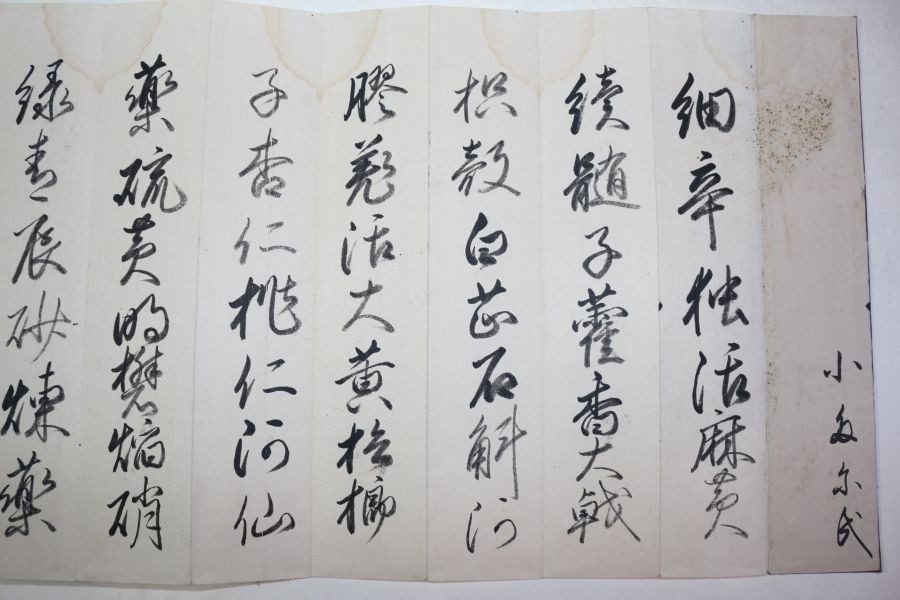 小尔氏
細辛独活麻黄
續髄子藿香大戟
枳殻白芷石斛阿
膠羗活大黄梹榔
子杏仁桃仁阿仙
藥硫黄明礬焔硝
緑青辰砂煉藥